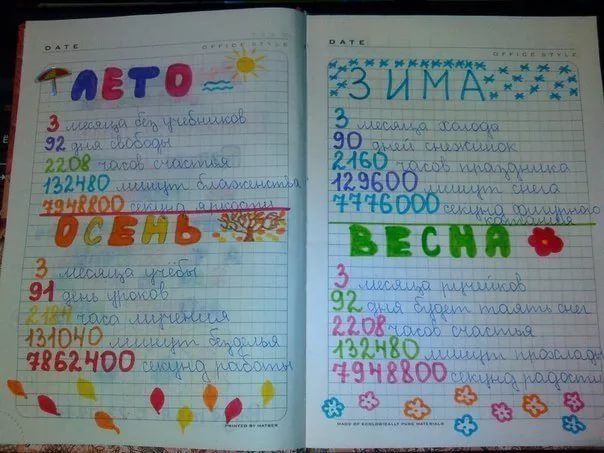 DATE
OFFICE STYLE
ЛЕТО
3 месяца без учебников
92 дня свободы
2208 часов счастья
132480 минут блаженства
7948800 секунд яркости
ОСЕНЬ
3 месяца учёбы
91 день уроков
2184 часа мучения
131040 минут безделья
7862400 секунд работы
PRINTED BY HATBER
DATE
OFFICE STYLE
ЗИМА
3 месяца холода
90 дней снежинок
2160 часов праздника
129600 минут снега
7776000 секунд фигурного
катания
ВЕСНА
3 месяца ручейков
92 дня будет таять снег
2208 часов счастья
132480 минут прохлады
7948800 секунд радости
MADE OF ECOLOGICALLY PURE MATERIALS